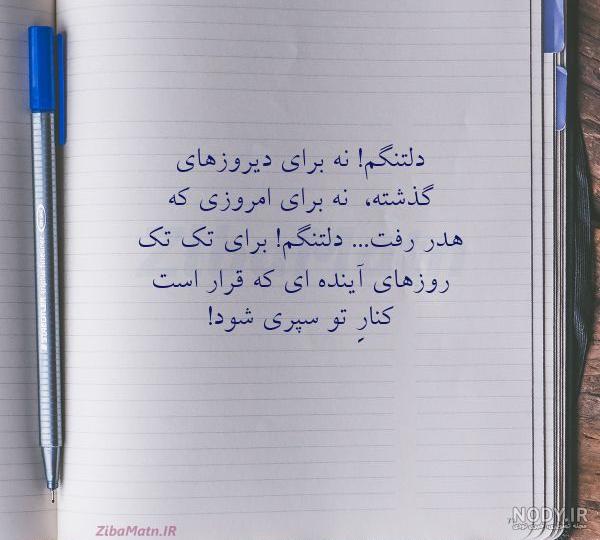 دلتنگم! نه برای دیروزهای
گذشته، نه برای امروزی که
هدر رفت... دلتنگم! برای تک تک
روزهای آینده ای که قرار است
کنارِ تو سپری شود!
ZibaMatn.IR
NODY.IR